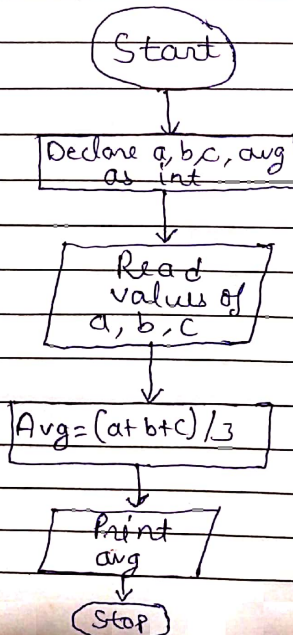 Start
Declare a, b, c, avg
as int
Read
values of
a, b, c
Avg = (a+b+c)/3
Print
avg
Stop